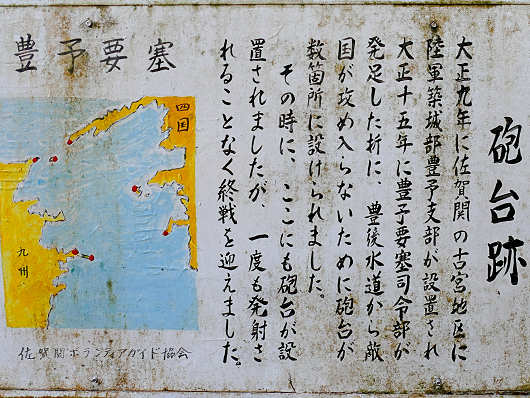 砲台跡
大正九年に佐賀関の古宮地区に
陸軍築城部豊予支部が設置され
大正十五年に豊予要塞司令部が
発足した折に、豊後水道から敵
国が攻め入らないために砲台が
数箇所に設けられました。
その時に、ここにも砲台が設
置されましたが、一度も発射さ
れることなく終戦を迎えました。
豊予要塞
四国
九州
佐賀関ボランティアガイド協会